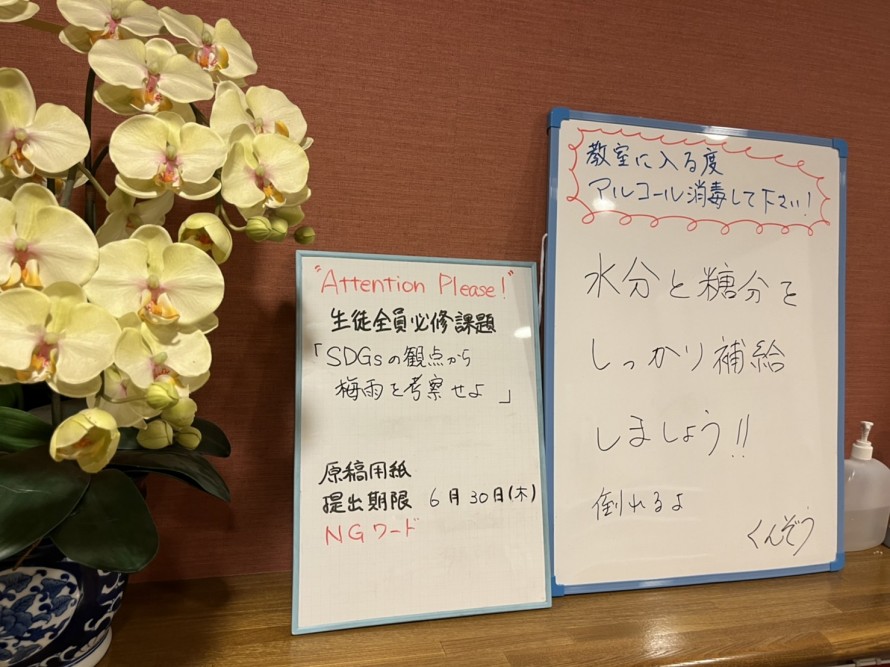 "Attention Please!"
生徒全員必修課題
「SDGsの観点から
梅雨を考察せよ」
原稿用紙
提出期限 6月30日(木)
NGワード
教室に入る度
アルコール消毒して下さい!
水分と糖分を
しっかり補給
しましょう!!
倒れるよ
くんぞう